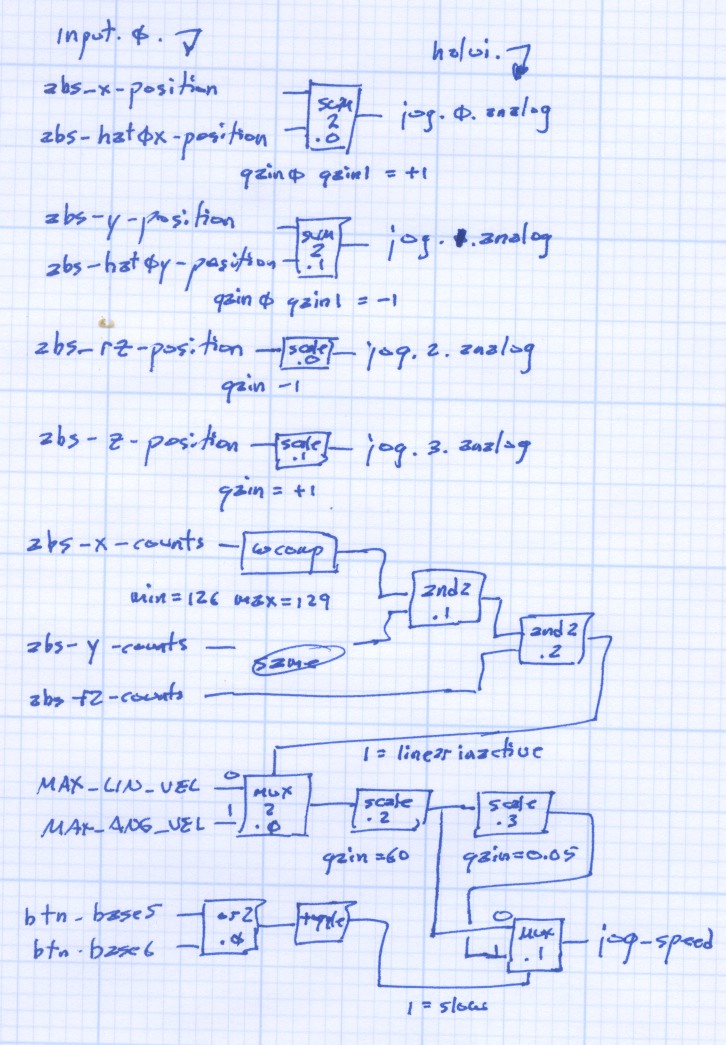 input.φ.
halui.
abs-x-position
sum 2 .0
jog.φ.analog
abs-hatφx-position
gainφ gain1 = +1
abs-y-position
sum 2 .1
jog.1.analog
abs-hatφy-position
gainφ gain1 = -1
abs-rz-position
scale .0
jog.2.analog
gain -1
abs-z-position
scale .1
jog.3.analog
gain = +1
abs-x-counts
wcomp
min=126 max=129
and2 .1
abs-y-counts
same
and2 .2
abs-rz-counts
1 = linear inactive
MAX_LIN_VEL 0
MAX_ANG_VEL 1
mux 2 .φ
scale .2
scale .3
gain=60
gain=0.05
btn-base5
btn-base6
or2 .φ
toggle
0
1
mux .1
jog-speed
1 = slow